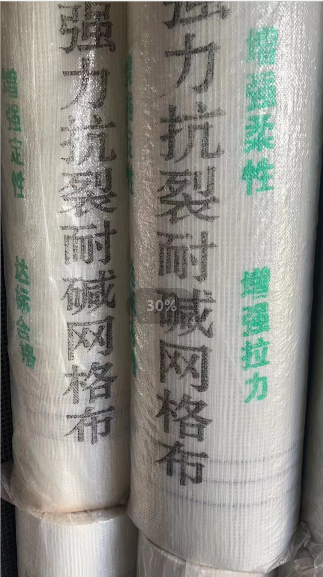 增强定性
达标合格
强力抗裂耐碱网格布
强力抗裂耐碱网格布
增强柔性
增强拉力
30%